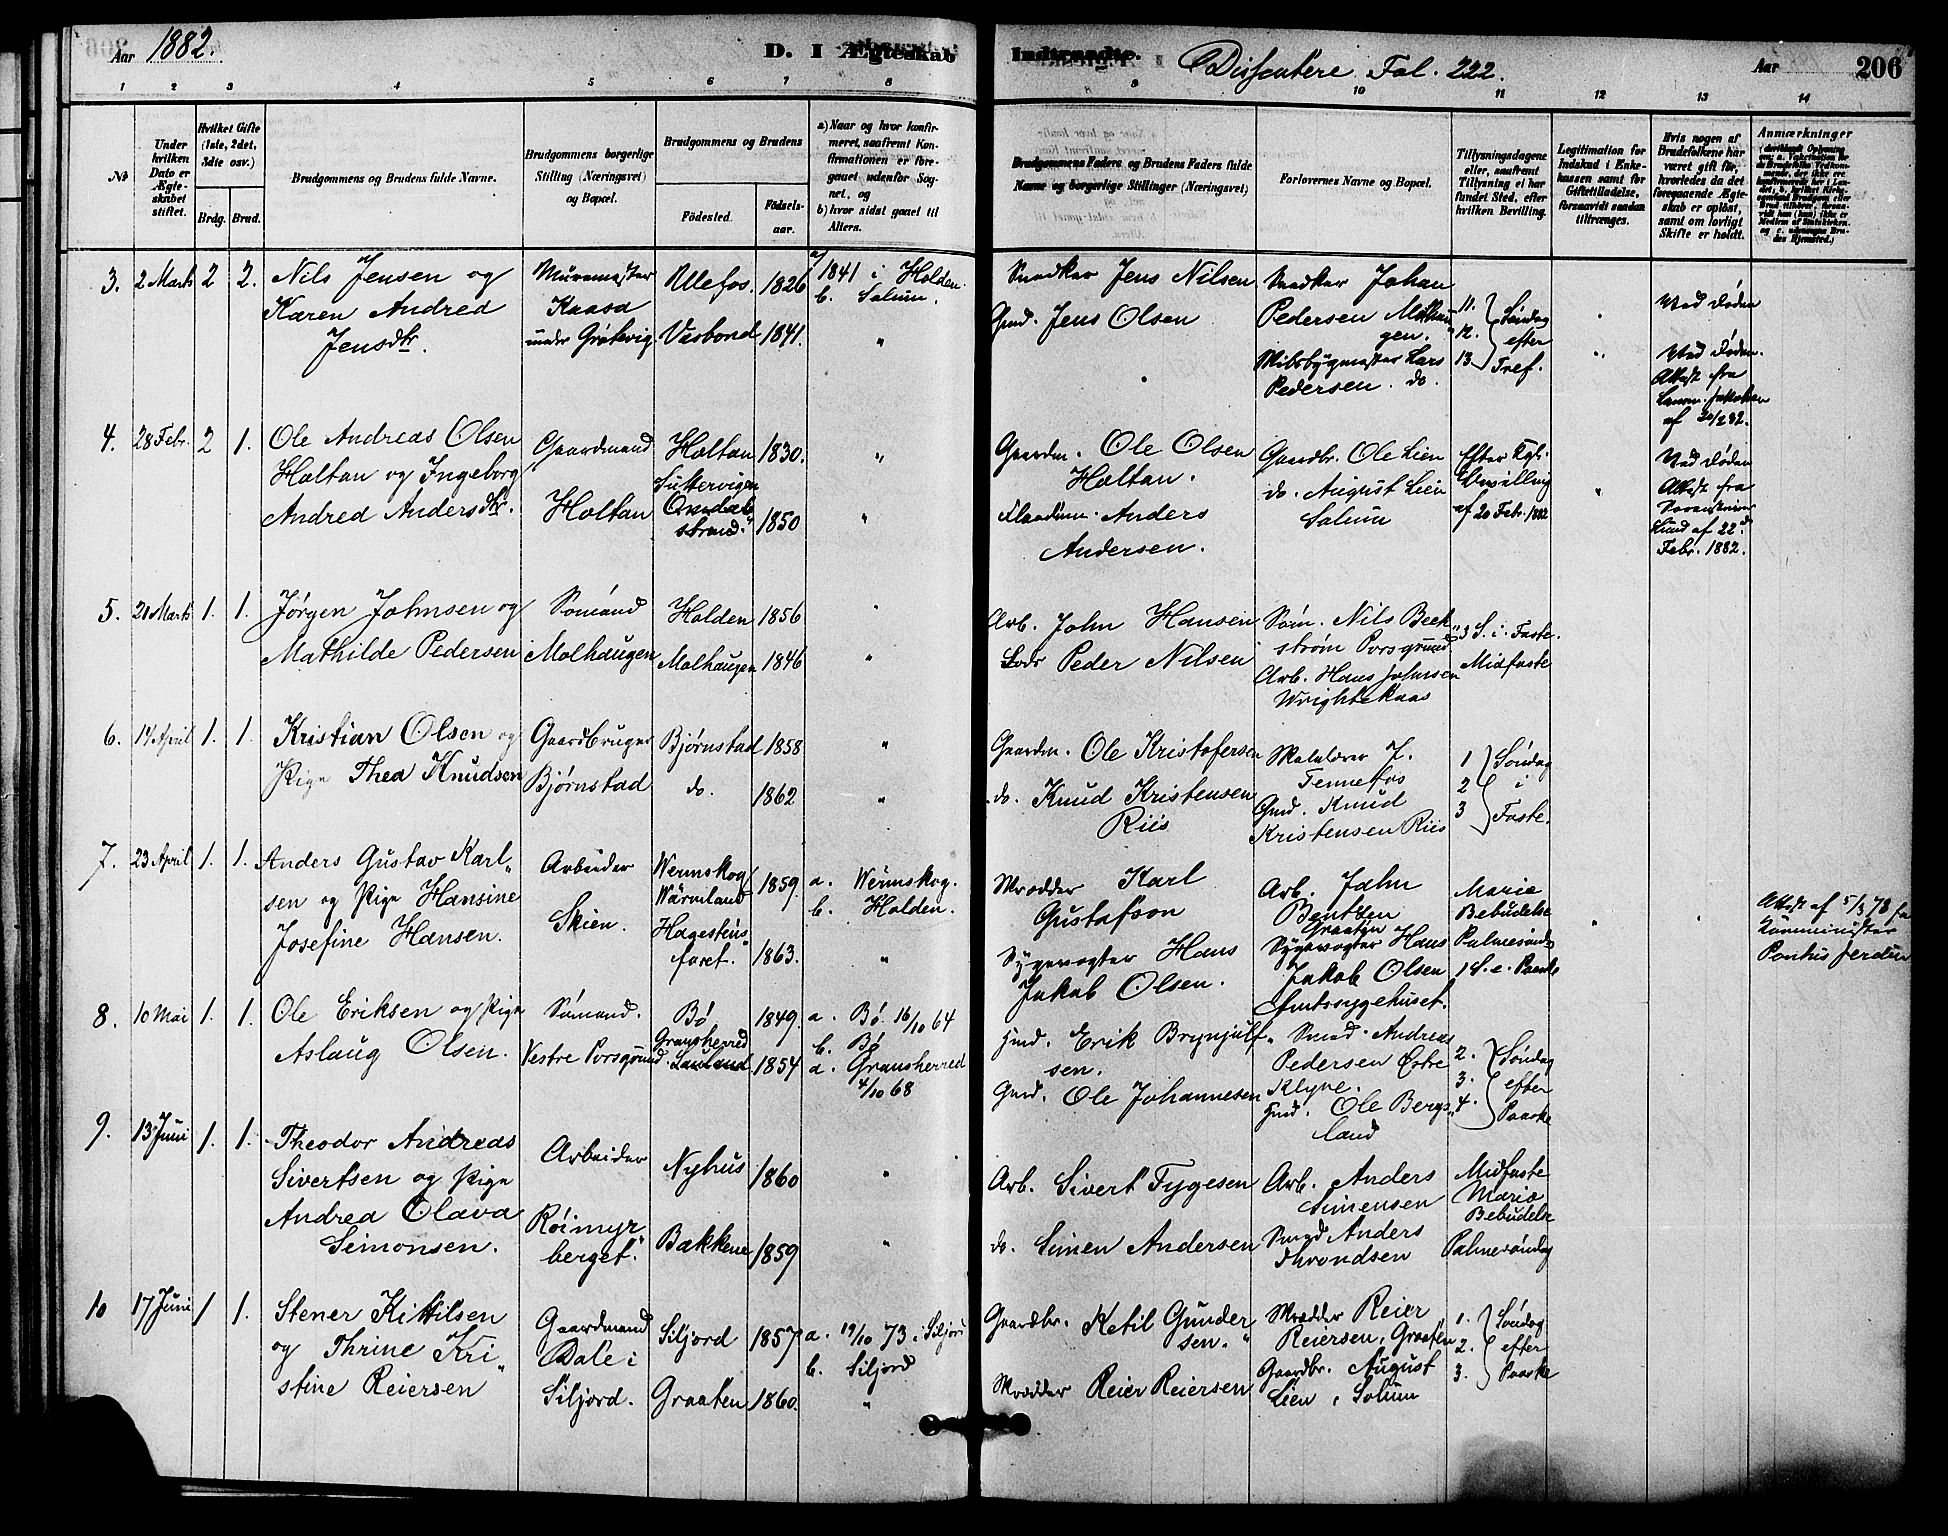 Aar 1882.
D. I Ægteskab
Indtraadte.
Dissentere Fol. 222.
Aar
206
1 2 3 4 5 6 7 8
9 10 11 12 13 14
No
Under hvilken Dato er Ægteskabet stiftet.
Hvilket Gifte (1ste, 2det, 3die osv.)
Brdg. Brud.
Brudgommens og Brudens fulde Navne.
Brudgommens borgerlige Stilling (Næringsvei) og Bopæl.
Brudgommens og Brudens
Fødested.
Fødsels-aar.
a) Naar og hvor konfirmeret, saafremt Konfirmationen er foregaaet udenfor Sognet, og
b) hvor sidst gaaet til Alters.
Brudgommens Faders og Brudens Faders fulde Navne og borgerlige Stillinger (Næringsvei)
Forlovernes Navne og Bopæl.
Tillysningsdagene eller, saafremt Tillysning ei har fundet Sted, efter hvilken Bevilling.
Legitimation for Indskud i Enkekassen samt for Giftetilladelse, forsaavidt saadan tiltrænges.
Hvis nogen af Brudefolkene har været gift før, hvorledes da det foregaaende Ægteskab er opløst, samt om lovligt Skifte er holdt.
Anmærkninger
3. 2 Marts 2 2. Nils Jensen og
Karen Andrea
Jensdtr.
Muremester
Kaasa
under Grøtvig
Ullefos. 1826
Vasbond 1841.
1841 i Holden
b. Solum.
"
Snedker Jens Nilsen
Gmd. Jens Olsen
Snedker Johan
Pedersen Molhau
gen.
Skibsbygmester Lars
Pedersen. do.
11.
12.
13
Søndag
efter
Tref.
Ved Døden
Ved Døden.
Attest fra
af 20/2 82.
4. 28 Febr. 2 1. Ole Andreas Olsen
Holtan og Ingeborg
Andrea Andersdtr.
Gaardmand
Holtan
Holtan 1830.
strand. 1850
"
"
Gaardm. Ole Olsen
Holtan.
Anders
Andersen.
Gaardbr. Ole Lien
do. August Lien
Solum
Efter Kgl.
Bevilling
af 20 Febr. 1882
Ved Døden
Attest fra
af 22d
Febr. 1882.
5. 21 Marts 1. 1. Jørgen Johnsen og
Mathilde Pedersen
Sømand
Molhaugen
Holden 1856
Molhaugen 1846
"
"
Arb. John Hansen
Lods Peder Nilsen
Søm. Nils Beck
strøm Porsgrund
Arb. Hans Johnsen
Wrightekaas
3 S. i Faste.
Midfaste
6. 14 April 1. 1. Kristian Olsen og
Pige Thea Knudsen
Gaardbruger
Bjørnstad
Bjørnstad 1858
do. 1862
"
"
Gaardm. Ole Kristofersen
do. Knud Kristensen
Riis
Skolelærer J.
Tennefos
Gmd. Knud
Kristensen Riis
1
2
3
Søndag
i
Faste.
7. 23 April 1. 1. Anders Gustav Karl
sen og Pige Hansine
Josefine Hansen.
Arbeider
Skien.
Wermskog
Wärmland 1859.
Hagestens
faret. 1863.
a. Wermskog.
b. Holden.
"
Skrædder Karl
Gustafson
Sygevogter Hans
Jakob Olsen.
Arb. John
Bentsen
Graaten
Sygevogter Hans
Jakob Olsen
Amtssygehuset.
Maria
Bebudelse
Palmesønd
1 S. e. Paaske
Attest af 5/3 78 fra
Komminister
8. 10 Mai 1. 1. Ole Eriksen og Pige
Aslaug Olsen.
Sømand.
Vestre Porsgrund
Bø 1849.
Gransherred
Sauland 1854
a. Bø 16/10 64
b. Bø
a. Gransherred
4/10 68
Gmd. Erik Brynjulf
sen.
Gmd. Ole Johannesen
Smed Andreas
Pedersen Østre
Klyve.
Gmd. Ole Bergs
land
2.
3.
4.
Søndag
efter
Paaske
9. 13 Juni 1. 1. Theodor Andreas
Sivertsen og Pige
Andrea Olava
Simonsen.
Arbeider
Röimyr
berget.
Nyhus 1860
Bakkene 1859
"
"
Arb. Sivert Tygesen
do. Simen Andersen
Arb. Anders
Simensen
Smed Anders
Throndsen
Midfaste
Maria
Bebudelse
Palmesøndag
10 17 Juni 1 1. Stener Kittilsen
og Thrine Kri
stine Reiersen
Gaardmand
Dale i
Siljord.
Siljord 1857
Graaten 1860.
a. 19/10 73 i Siljord
b. Siljord
"
Gaardbr. Ketil Gunder
sen.
Skrædder Reier Reiersen
Skrædder Reier
Reiersen, Graaten
Gaardbr. August
Lien, Solum
1.
2.
3.
Søndag
efter
Paaske